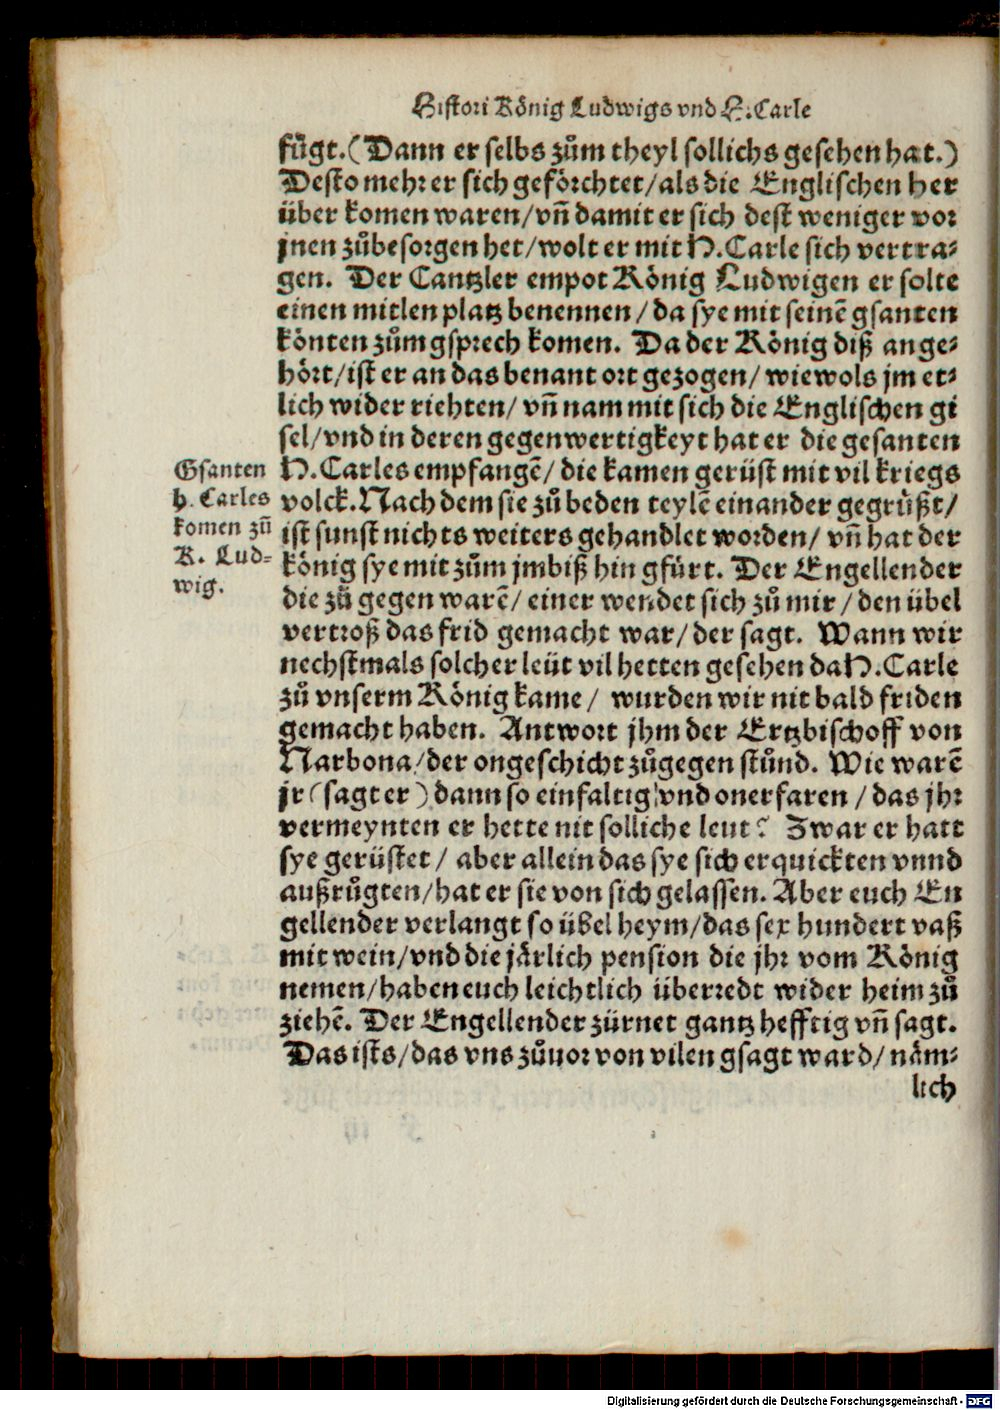 Histori König Ludwigs vnd H. Carle
fůgt. (Dann er selbs zům theyl sollichs gesehen hat.)
Desto mehr er sich geförchtet/ als die Englischen her
über komen waren/ vñ damit er sich dest weniger vor
jnen zůbesorgen het/ wolt er mit H. Carle sich vertra⸗
gen. Der Cantzler empot König Ludwigen er solte
einen mitlen platz benennen/ da sye mit seinẽ gsanten
könten zům gsprech komen. Da der König diß ange⸗
hört/ ist er an das benant ort gezogen/ wiewols jm et⸗
lich wider riehten/ vñ nam mit sich die Englischen gi
sel/ vnd in deren gegenwertigkeyt hat er die gesanten
Gsanten
h. Carles
komen zů
K. Lud⸗
wig.
H. Carles empfangẽ/ die kamen gerüst mit vil kriegs
volck. Nach dem sie zů beden teylẽ einander gegrůßt/
ist sunst nichts weiters gehandlet worden/ vñ hat der
könig sye mit zům jmbiß hin gfürt. Der Engellender
die zů gegen warẽ/ einer wendet sich zů mir/ den übel
vertroß das frid gemacht war/ der sagt. Wann wir
nechstmals solcher leüt vil hetten gesehen da H. Carle
zů vnserm König kame/ wurden wir nit bald friden
gemacht haben. Antwort jhm der Ertzbischoff von
Narbona/ der ongeschicht zůgegen stůnd. Wie warẽ
jr (sagt er) dann so einfaltig vnd onerfaren/ das jhr
vermeynten er hette nit solliche leut? Zwar er hatt
sye gerüstet/ aber allein das sye sich erquickten vnnd
außrůgten/ hat er sie von sich gelassen. Aber euch En
gellender verlangt so übel heym/ das sex hundert vaß
mit wein/ vnd die järlich pension die jhr vom König
nemen/ haben euch leichtlich überredt wider heim zů
ziehẽ. Der Engellender zürnet gantz hefftig vñ sagt.
Das ists/ das vns zůuor von vilen gsagt ward/ näm⸗
lich
Digitalisierung gefördert durch die Deutsche Forschungsgemeinschaft - DFG